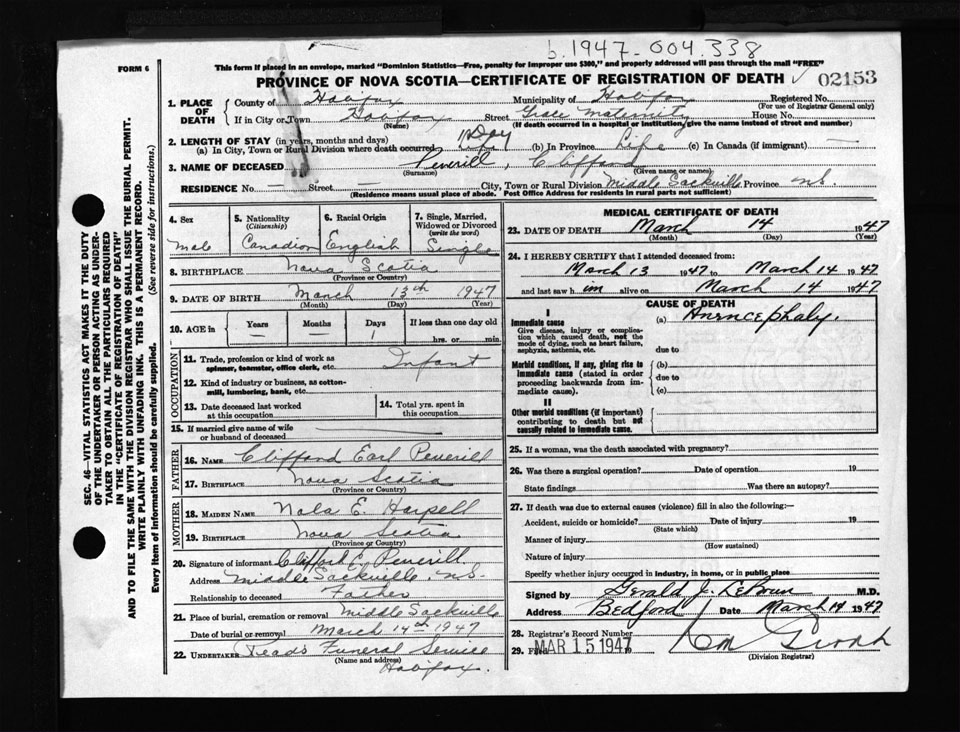 b. 1947-004.338
FORM 6
This form if placed in an envelope, marked "Dominion Statistics—Free, penalty for improper use $300," and properly addressed will pass through the mail "FREE"
PROVINCE OF NOVA SCOTIA—CERTIFICATE OF REGISTRATION OF DEATH
02153
1. PLACE OF DEATH
County of Halifax Municipality of Halifax Registered No.
(For use of Registrar General only)
If in City or Town Halifax Street Grace Maternity House No.
(Name) (If death occurred in a hospital or institution, give the name instead of street and number)
2. LENGTH OF STAY (in years, months and days)
(a) In City, Town or Rural Division where death occurred 1 Day (b) In Province Life (c) In Canada (if immigrant) —
3. NAME OF DECEASED Peverill, Clifford
(Surname) (Given name or names)
RESIDENCE No. — Street — City, Town or Rural Division Middle Sackville Province N.S.
(Residence means usual place of abode. Post Office Address for residents in rural parts not sufficient)
4. Sex
Male
5. Nationality
(Citizenship)
Canadian
6. Racial Origin
English
7. Single, Married, Widowed or Divorced
(write the word)
Single
8. BIRTHPLACE Nova Scotia
(Province or Country)
9. DATE OF BIRTH March 13th 1947
(Month) (Day) (Year)
10. AGE in
Years Months Days If less than one day old
— — 1 hrs. or min.
OCCUPATION
11. Trade, profession or kind of work as spinner, teamster, office clerk, etc. Infant
12. Kind of industry or business, as cotton-mill, lumbering, bank, etc.
13. Date deceased last worked at this occupation
14. Total yrs. spent in this occupation
15. If married give name of wife or husband of deceased
FATHER
16. NAME Clifford Earl Peverill
17. BIRTHPLACE Nova Scotia
(Province or Country)
MOTHER
18. MAIDEN NAME Nola E. Harpell
19. BIRTHPLACE Nova Scotia
(Province or Country)
20. Signature of informant Clifford E. Peverill
Address Middle Sackville, N.S.
Relationship to deceased Father
21. Place of burial, cremation or removal Middle Sackville
Date of burial or removal March 14th 1947
22. UNDERTAKER Funeral Service
(Name and address) Halifax.
MEDICAL CERTIFICATE OF DEATH
23. DATE OF DEATH March 14 1947
(Month) (Day) (Year)
24. I HEREBY CERTIFY that I attended deceased from:
March 13 1947 to March 14 1947
and last saw him alive on March 14 1947
CAUSE OF DEATH
I
Immediate cause (a) Anencephaly.
Give disease, injury or complication which caused death, not the mode of dying, such as heart failure, asphyxia, asthenia, etc.
due to
Morbid conditions, if any, giving rise to immediate cause (stated in order proceeding backwards from immediate cause).
(b)
due to
(c)
II
Other morbid conditions (if important) contributing to death but not causally related to immediate cause.
25. If a woman, was the death associated with pregnancy?
26. Was there a surgical operation? Date of operation 19
State findings Was there an autopsy?
27. If death was due to external causes (violence) fill in also the following:—
Accident, suicide or homicide? Date of injury 19
(State which)
Manner of injury
(How sustained)
Nature of injury
Specify whether injury occurred in industry, in home, or in public place
Signed by Gerald J. LeBrun M.D.
Address Bedford Date March 14 1947
28. Registrar's Record Number
29. Filed MAR 15 1947
(Division Registrar)
SEC. 46—VITAL STATISTICS ACT MAKES IT THE DUTY
OF THE UNDERTAKER OR PERSON ACTING AS UNDER-
TAKER TO OBTAIN ALL THE PARTICULARS REQUIRED
IN THE "CERTIFICATE OF REGISTRATION OF DEATH"
AND TO FILE THE SAME WITH THE DIVISION REGISTRAR WHO SHALL ISSUE THE BURIAL PERMIT.
WRITE PLAINLY WITH UNFADING INK. THIS IS A PERMANENT RECORD.
Every item of information should be carefully supplied. (See reverse side for instructions.)